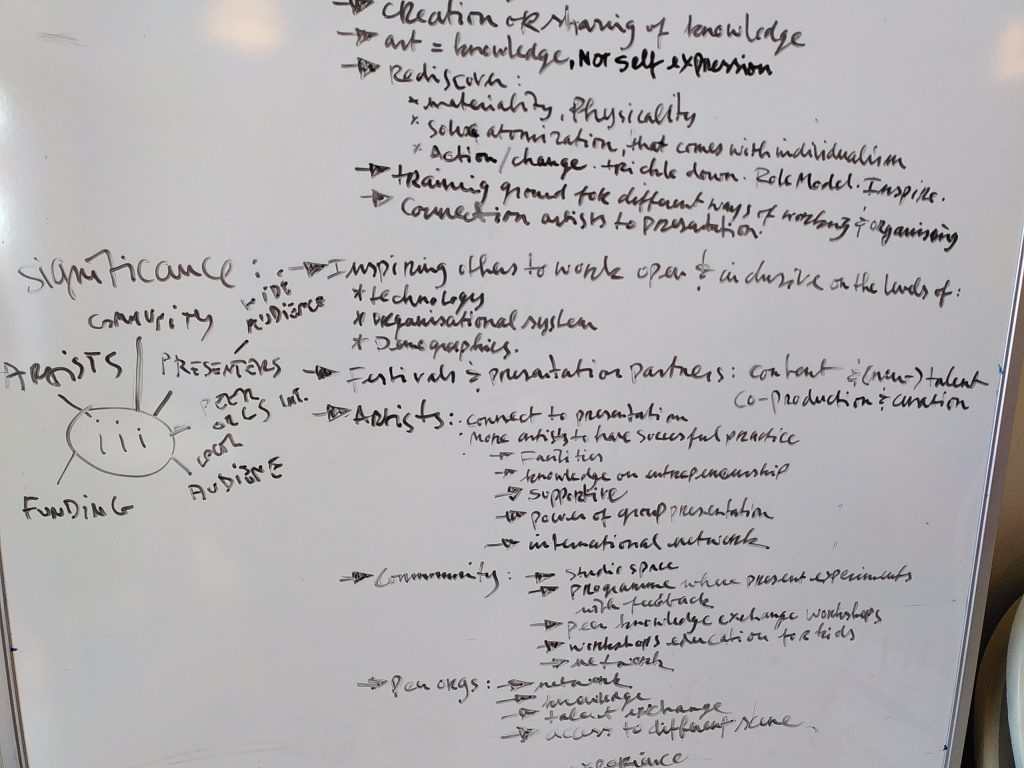 → creation or sharing of knowledge
→ art = knowledge, Not self expression
→ Rediscover:
* materiality, Physicality
* Solve atomization, that comes with individualism
* Action/change. trickle down. Role Model. Inspire.
→ training ground for different ways of working & organising
→ Connection artists to presentation
Significance: → Inspiring others to work open & inclusive on the levels of:
* technology
* organisational system
* Demographics.
→ Festivals & presentation partners: content & (new-) talent
co-production & curation
→ Artists: connect to presentation
more artists to have successful practice
→ Facilities
→ knowledge on entrepeneurship
→ supportive
→ power of group presentation
→ international network
→ Community: → studio space
→ programme where present experiments
with feedback
→ peer knowledge exchange workshops
→ workshops education for kids
→ network
→ Peer orgs: → network
→ knowledge
→ talent exchange
→ access to different scene
experience
WIDE
AUDIENCE
COMMUNITY
ARTISTS
PRESENTERS
PEER
ORGS INT.
iii
LOCAL
AUDIENCE
FUNDING